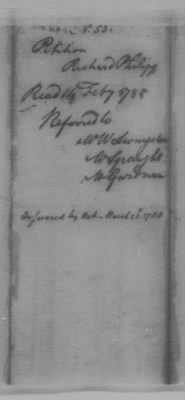 No. 53.
Petition
Richard Philipp
Read 14 Feby 1785
Referred to
Mr W Livingston
Mr Spaight
Mr Gardner
Answered by Rep. March 21. 1785